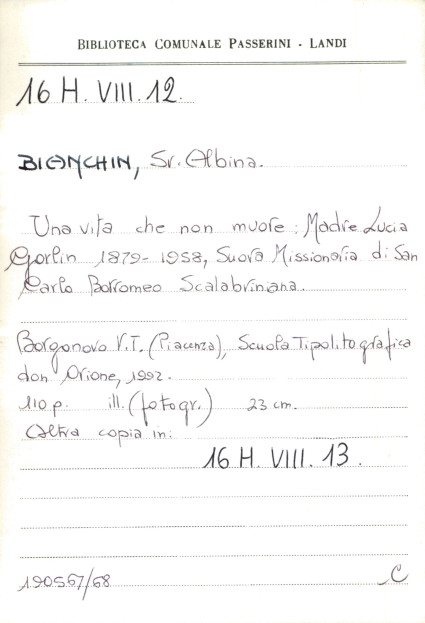 BIBLIOTECA COMUNALE PASSERINI - LANDI
16 H. VIII. 12.
BIANCHIN, Sr. Albina.
Una vita che non muore: Madre Lucia
Gorlin 1879-1958, Suora Missionaria di San
Carlo Borromeo Scalabriniana.
Borgonovo V.T. (Piacenza), Scuola Tipolitografica
don Orione, 1992.
110 p. ill. (fotogr.) 23 cm.
Altra copia in:
16 H. VIII. 13.
190567/68
C